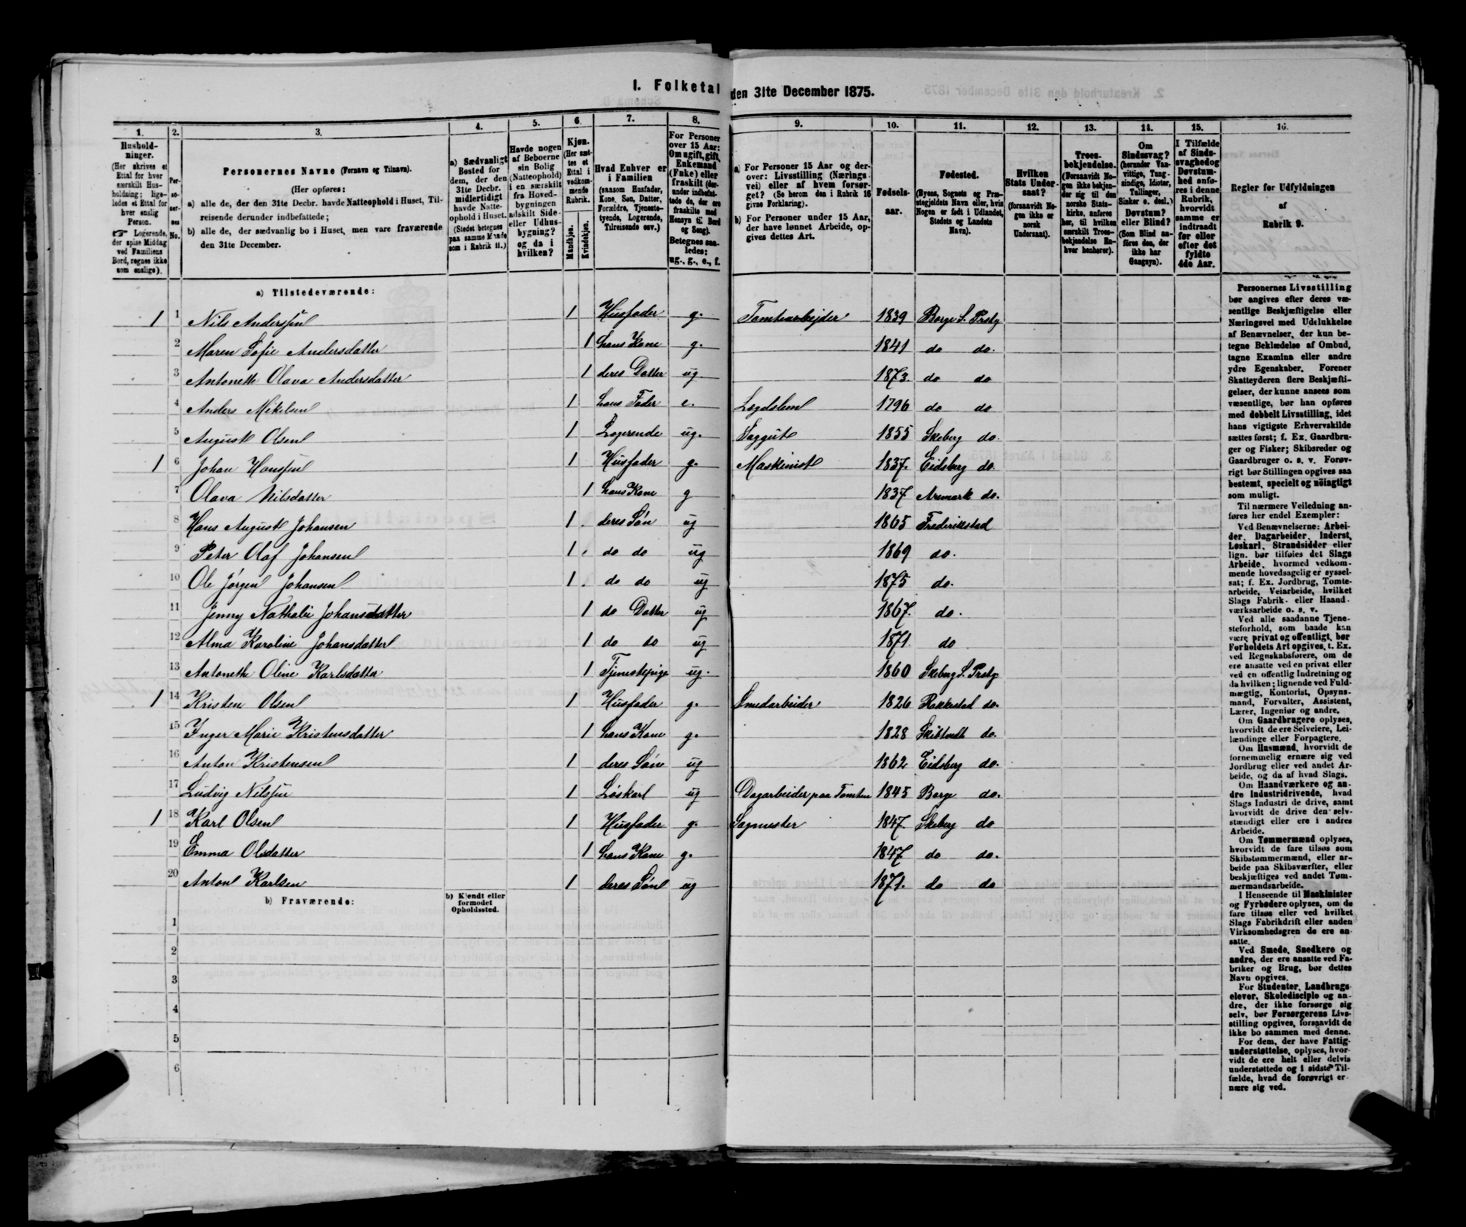 I. Folketal den 31te December 1875.
1. 2. 3. 4. 5. 6. 7. 8. 9. 10. 11. 12. 13. 14. 15. 16.
Husholdninger. (Her skrives et Ettal for hver særskilt Husholdning; ligeledes et Ettal for hver enslig Person. ☞ Logerende, der spise Middag ved Familiens Bord, regnes ikke som enslige).
Personernes No.
Personernes Navne (Fornavn og Tilnavn).
(Her opføres:
a) alle de, der den 31te Decbr. havde Natteophold i Huset, Tilreisende derunder indbefattede;
b) alle de, der sædvanlig bo i Huset, men vare fraværende den 31te December.
a) Sædvanligt Bosted for dem, der den 31te Decbr. midlertidigt havde Natteophold i Huset. (Stedet betegnes paa samme Maade som i Rubrik 11.)
Havde nogen af Beboerne sin Bolig (Natteophold) i en særskilt fra Hovedbygningen adskilt Side- eller Udhusbygning? og da i hvilken?
Kjøn. (Her sættes et Ettal i vedkommende Rubrik. Mandkjøn. Kvindekjøn.
Hvad Enhver er i Familien (saasom Husfader, Kone, Søn, Datter, Forældre, Tjenestetyende, Logerende, Tilreisende osv.)
For Personer over 15 Aar: Om ugift, gift, Enkemand (Enke) eller fraskilt Betegnes saaledes: ug., g., e., f.
a) For Personer 15 Aar og derover: Livsstilling (Næringsvei) eller af hvem forsørget? (Se herom den i Rubrik 16 givne Forklaring).
b) For Personer under 15 Aar, der have lønnet Arbeide, opgives dettes Art.
Fødselsaar.
Fødested. (Byens, Sognets og Præstegjeldets Navn eller, hvis Nogen er født i Udlandet, Stedets og Landets Navn).
Hvilken Stats Undersaat? (forsaavidt Nogen ikke er norsk Undersaat).
Troesbekjendelse. (Forsaavidt Nogen ikke bekjender sig til den norske Statskirke, anføres her, til hvilken særskilt Troesbekjendelse Enhver henhører).
Om Sindssvag? (herunder Vanvittige, Tungsindige, Idioter, Tullinger, Sinker o. desl.) Døvstum? eller Blind? (Som Blind anføres den, der ikke har Gangsyn).
I Tilfælde af Sindssvaghed og Døvstumhed anføres i denne Rubrik, hvorvidt samme er indtraadt før eller efter det fyldte 4de Aar.
Regler for Udfyldningen af Rubrik 9.
a) Tilstedeværende:
1 1 Nils Andersen 1 Husfader g. Tomtearbejder 1839 Borge S. Prstg
2 Maren Sofie Andersdatter 1 hans Kone g. 1841 do do.
3 Antonette Olava Andersdatter 1 deres Datter ug 1873. do do
4 Anders Mikelsen 1 hans Fader e. Lægdslem 1796 do do
5 August Olsen 1 Logerende ug. Saggut 1855 Skeberg do.
1 6 Johan Hansen 1 Husfader g. Maskinist 1837. Eidsberg do.
7 Olava Nilsdatter hans Kone g 1837 Aremark do.
8 Hans August Johansen 1 deres Søn ug 1865 Frederikstad
9 Peter Olaf Johansen 1 do do ug 1869 do.
10 Ole Jørgen Johansen 1 do do ug 1875 do.
11 Jenny Nathalie Johansdatter 1 do Datter ug 1867. do.
12 Alma Karoline Johansdatter 1 do do ug 1871. do
13 Antonette Oline Karlsdatter 1 Tjenestepige ug. 1860 Skeberg S. Prstg
1 14 Kristen Olsen 1 Husfader g. Smedarbeider 1826 Rakkestad do.
15 Inger Marie Kristensdatter 1 hans Kone g. 1828 Skibtvedt do.
16 Anton Kristensen 1 deres Søn ug 1862 Eidsberg do.
17 Ludvig Nilsen 1 Løskarl ug Dagarbeider paa Tomten 1845 Borge do.
1 18 Karl Olsen 1 Husfader g. Sagmester 1847. Skeberg do
19 Emma Olsdatter 1 hans Kone g. 1847 do do.
20 Anton Karlsen 1 deres Søn ug 1871. do do
b) Fraværende: b) Kjendt eller formodet Opholdssted.
1
2
3
4
5
6
Personernes Livsstilling
bør angives efter deres væsentlige
Beskjæftigelse eller
Næringsvei med Udelukkelse
af Benævnelser, der kun betegne
Beklædelse af Ombud,
tagne Examina eller andre
ydre Egenskaber. Forener
Skatteyderen flere Beskjæftigelser,
der kunne ansees som
væsentlige, bør han opføres
med dobbelt Livsstilling, idet
hans vigtigste Erhvervskilde
sættes først; f. Ex. Gaardbruger
og Fisker; Skibsreder og
Gaardbruger o. s. v. Forøvrigt
bør Stillingen opgives saa
bestemt, specielt og nöiagtigt
som muligt.
Til nærmere Veiledning anføres
her endel Exempler:
Ved Benævnelserne: Arbeider,
Dagarbeider, Inderst,
Løskarl, Strandsidder eller
lign. bør tilføies det Slags
Arbeide, hvormed vedkommende
hovedsagelig er sysselsat;
f. Ex. Jordbrug, Tomtearbeide,
Veiarbeide, hvilket
Slags Fabrik- eller Haandværksarbeide
o. s. v.
Ved alle saadanne Tjenesteforhold,
som baade kan
være privat og offentligt, bør
Forholdets Art opgives, t. Ex.
ved Regnskabsførere, om de
ere ansatte ved en privat eller
ved en offentlig Indretning og
da hvilken; lignende ved Fuldmægtig,
Kontorist, Opsynsmand,
Forvalter, Assistent,
Lærer, Ingeniør og andre.
Om Gaardbrugere oplyses,
hvorvidt de ere Selveiere, Leilændinge
eller Forpagtere.
Om Husmænd, hvorvidt de
fornemmelig ernære sig ved
Jordbrug eller ved andet Arbeide,
og da af hvad Slags.
Om Haandværkere og andre
Industridrivende, hvad
Slags Industri de drive, samt
hvorvidt de drive den selvstændigt
eller ere i andres
Arbeide.
Om Tømmermænd oplyses,
hvorvidt de fare tilsøs som
Skibstømmermænd, eller arbeide
paa Skibsværfter, eller
beskjæftiges ved andet Tømmermandsarbeide.
I Henseende til Maskinister
og Fyrbødere oplyses, om de
fare tilsøs eller ved hvilket
Slags Fabrikdrift eller anden
Virksomhedsgren de ere ansatte.
Ved Smede, Snedkere og
andre, der ere ansatte ved Fabriker
og Brug, bør dettes
Navn opgives.
For Studenter, Landbrugselever,
Skoledisciple og andre,
der ikke forsørge sig
selv, bør Forsørgerens Livsstilling
opgives, forsaavidt de
ikke bo sammen med denne.
For dem, der have Fattigunderstøttelse,
oplyses, hvorvidt
de ere helt eller delvis
understøttede og i sidste Tilfælde,
hvad de forøvrigt ernære
sig ved.